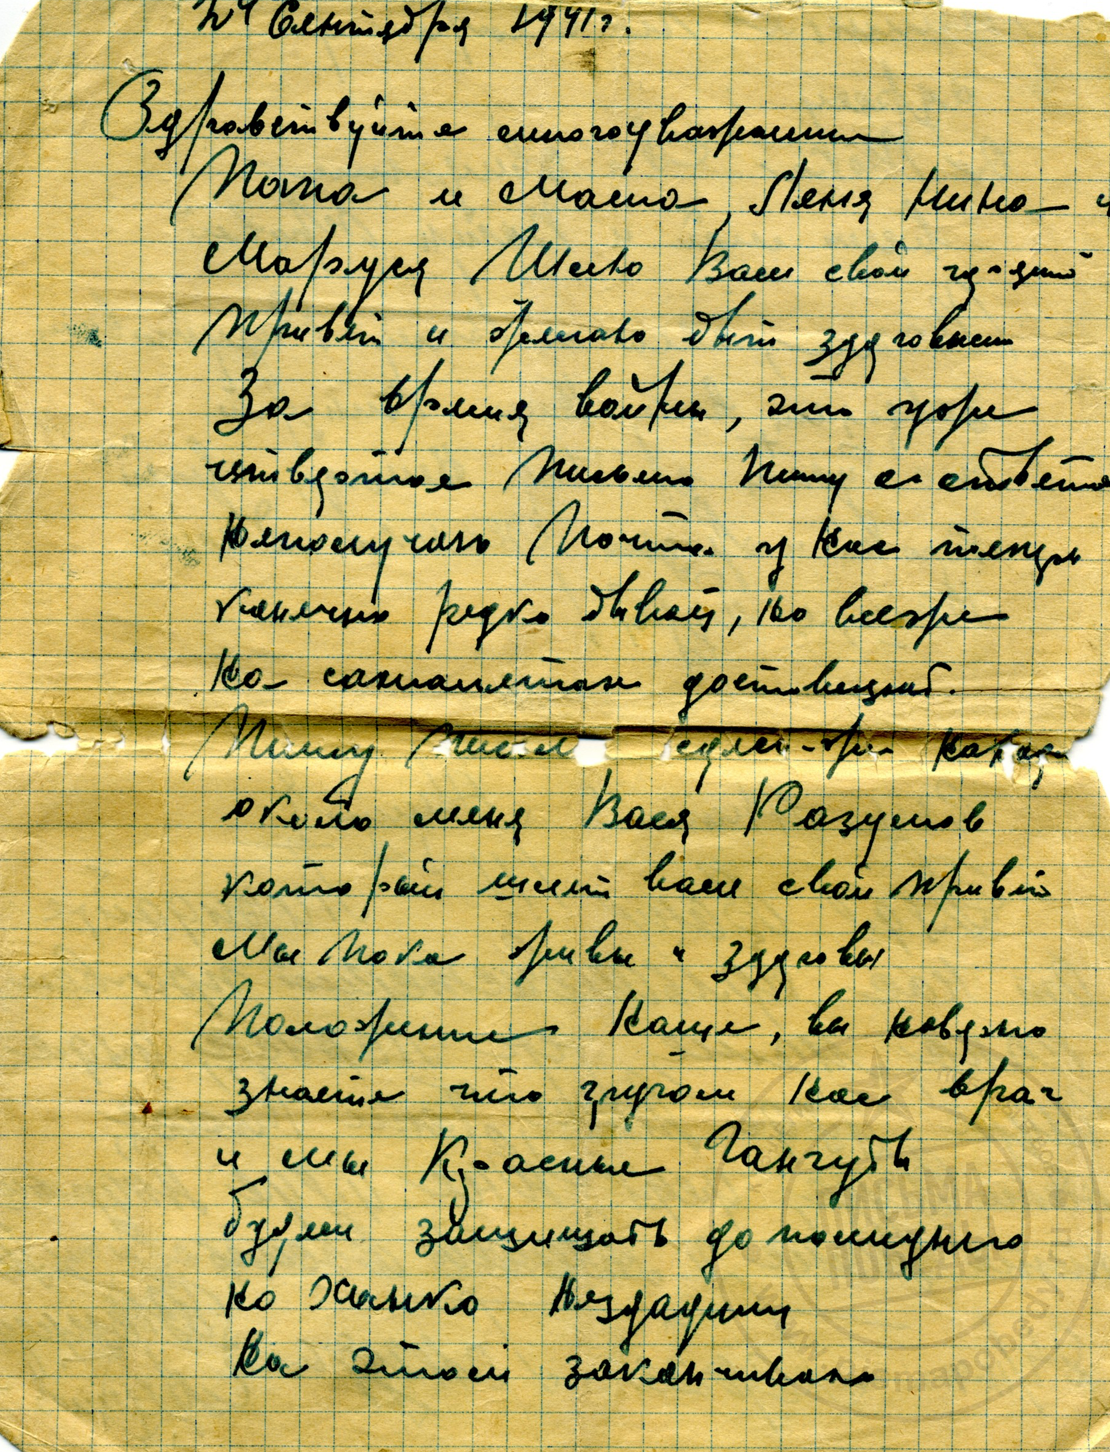 24 Сентября 1941 г.
Здравствуйте многоуважаемые
Папа и Мама, Леня Нина и
Маруся Шлю Вам свой горячий
привет и желаю быть здоровыми
За время войны, это уже
письмо Пишу а ответа
неполучаю Почта у нас теперь
конечно редко бывает, но все же
на самолетах доставляют.
Пишу
около меня Вася Разумов
который шлет вам свой привет
Мы пока живы и здоровы
Положение наше, вы наверно
знаете что кругом нас враг
и мы Красные Гангутцы
будем защищать до последнего
но Ханко нездадим
На этом заканчиваю
ПИСЬМА